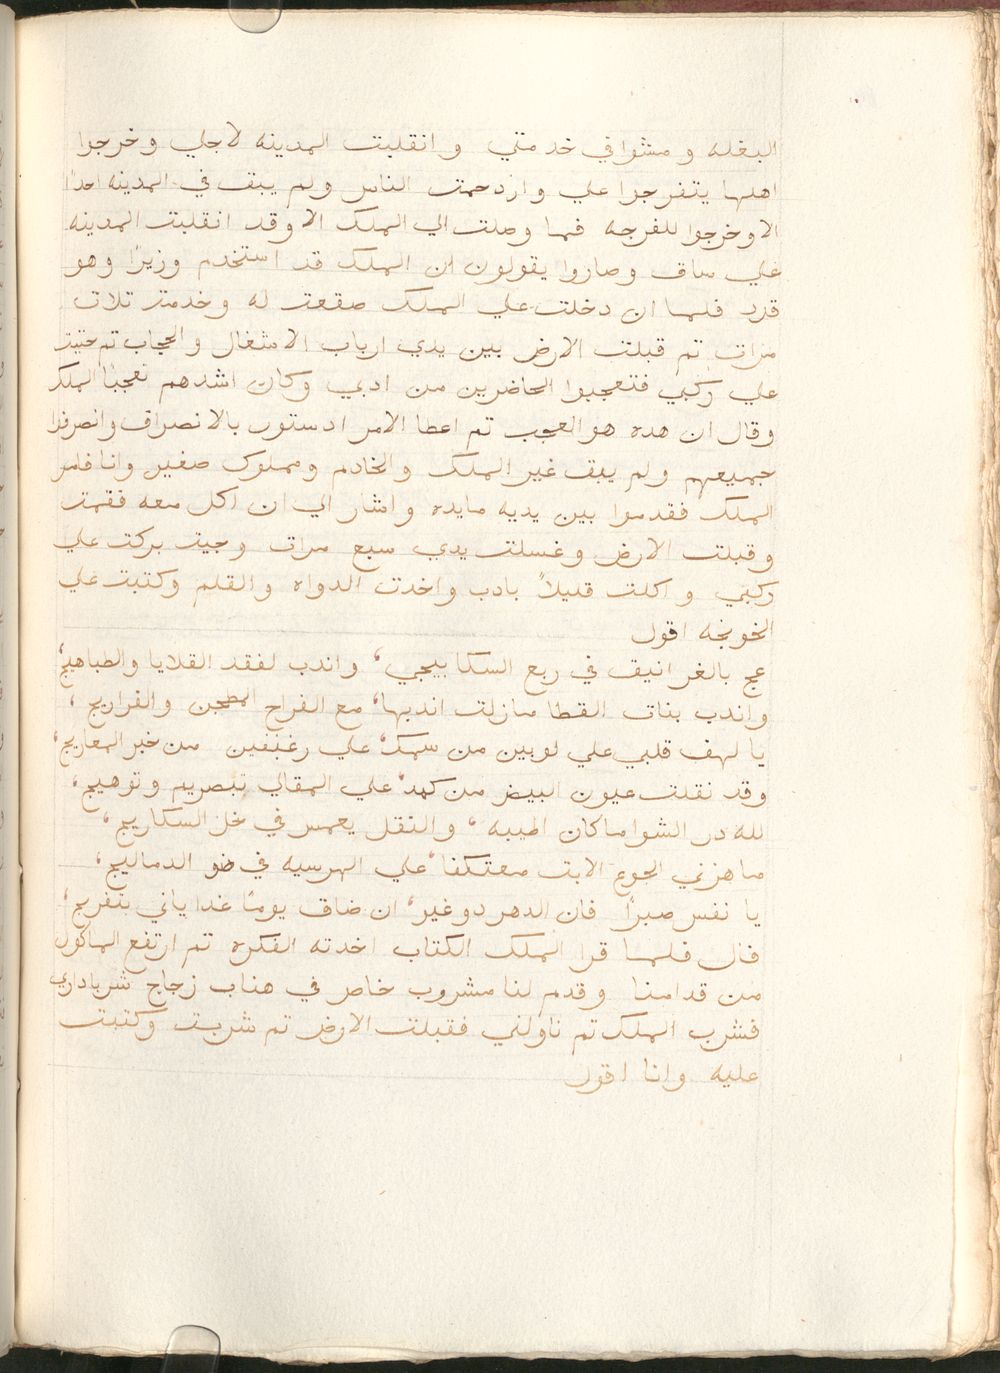 البغله ومشوا في خدمتي وانقلبت المدينه لاجلي وخرجوا
اهلها يتفرجوا علي وازدحمت الناس ولم يبق في المدينه احدًا
الا وخرجوا للفرجه فما وصلت الي الملك الا وقد انقلبت المدينه
علي ساق وصاروا يقولون ان الملك قد استخدم وزيرًا وهو
قرد فلما ان دخلت علي الملك صقعت له وخدمت تلات
مرات تم قبلت الارض بين يدي ارباب الاشغال والحجاب تم جتيت
علي ركبي فتعجبوا الحاضرين من ادبي وكان اشدهم تعجبًا الملك
وقال ان هده هو العجب تم اعطا الامر ادستور بالانصراف وانصرفوا
جميعهم ولم يبق غير الملك والخادم ومملوك صغير وانا فامر
الملك فقدموا بين يديه مايده واشار الي ان اكل معه فقمت
وقبلت الارض وغسلت يدي سبع مرات وجيت بركت علي
ركبتي واكلت قليلاً بادب واخدت الدواه والقلم وكتبت علي
الخونجه اقول
عج بالغرانيق في ربع السكابيجي، واندب لفقد القلايا والطباهيج،
واندب بنات القطا مازلت اندبها، مع الفراح المطجن والفراريج،
يا لهف قلبي علي لوبين من سمك، علي رغيفين من خبر المعاريج،
وقد نقلت عيون البيض من كمد، علي المقالي تبصريم وتوهيج،
لله در الشوا ماكان اطيبه، والنقل يغمس في خل السكاريج،
ما هزني الجوع الا بت معتكفا، علي الهرسيه في ضو الدماليج،
يا نفس صبرًا فان الدهر دو غير، ان ضاق يومًا غدا ياتي بتفريج،
قال فلما قرا الملك الكتاب اخدته الفكره تم ارتفع الماكول
من قدامنا وقدم لنا مشروب خاص في هناب زجاج شرباداري
فشرب الملك تم ناولني فقبلت الارض تم شربت وكتبت
عليه وانا اقول